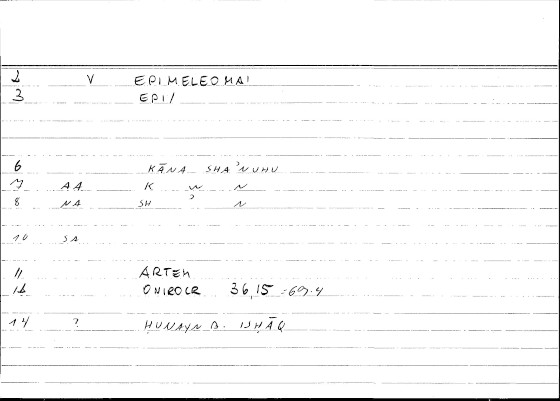 1 V EPIMELEOMAI
3 EPI/
6 KĀNA SHA'NUHU
7 AA K W N
8 NA SH ' N
10 SA
11 ARTEM
12 ONIROCR 36,15 = 69.4
14 ? ḤUNAYN B. ISḤĀQ